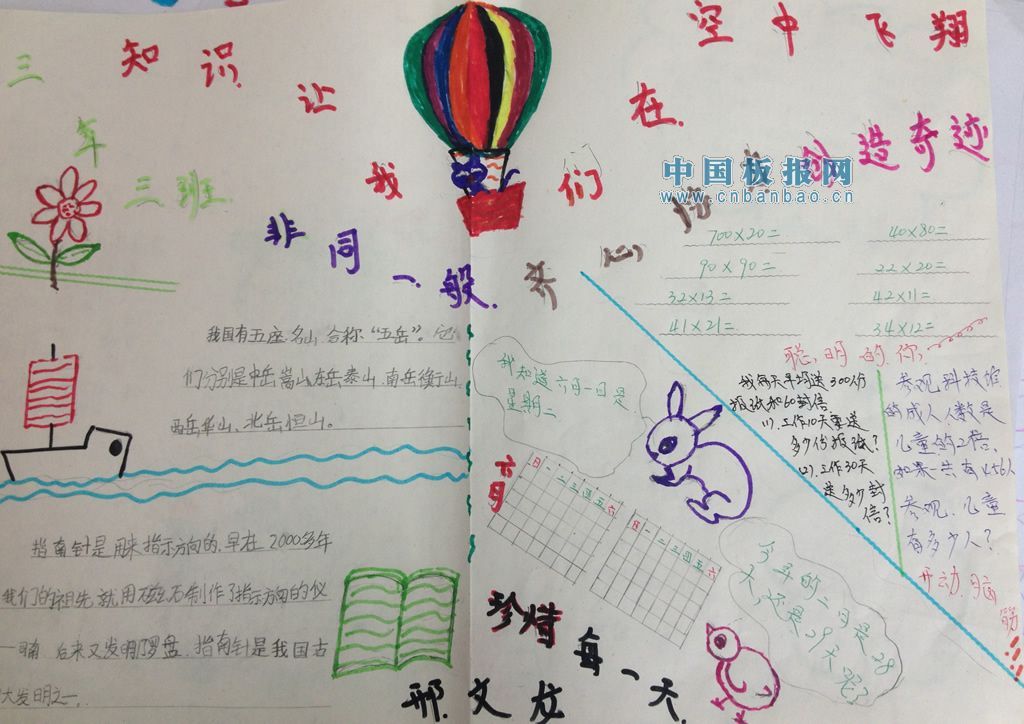 三年
三班
知识让我们在空中飞翔
非同一般
齐心
创造奇迹
中国板报网
www.cnbanbao.cn
700×20=
40×80=
90×90=
22×20=
32×13=
42×11=
41×21=
34×12=
聪明的你
我国有五座名山合称“五岳”。它
们分别是中岳嵩山东岳泰山南岳衡山
西岳华山、北岳恒山。
我知道六月一日是
星期二
我每天平均送300份
报纸和60封信
(1).工作10天要送
多少份报纸?
(2).工作30天
送多少封
信?
参观科技馆
的成人人数是
儿童的2倍,
如果一共有456人
参观,儿童
有多少人?
开动脑筋
六月
日一二三四五六
日一二三四五六
今年的二月是28
天,还是29天呢?
指南针是用来指示方向的,早在2000多年
我们的祖先就用磁石制作了指示方向的仪
司南 后来又发明了罗盘,指南针是我国古
大发明之一,
珍惜每一天
邢文龙